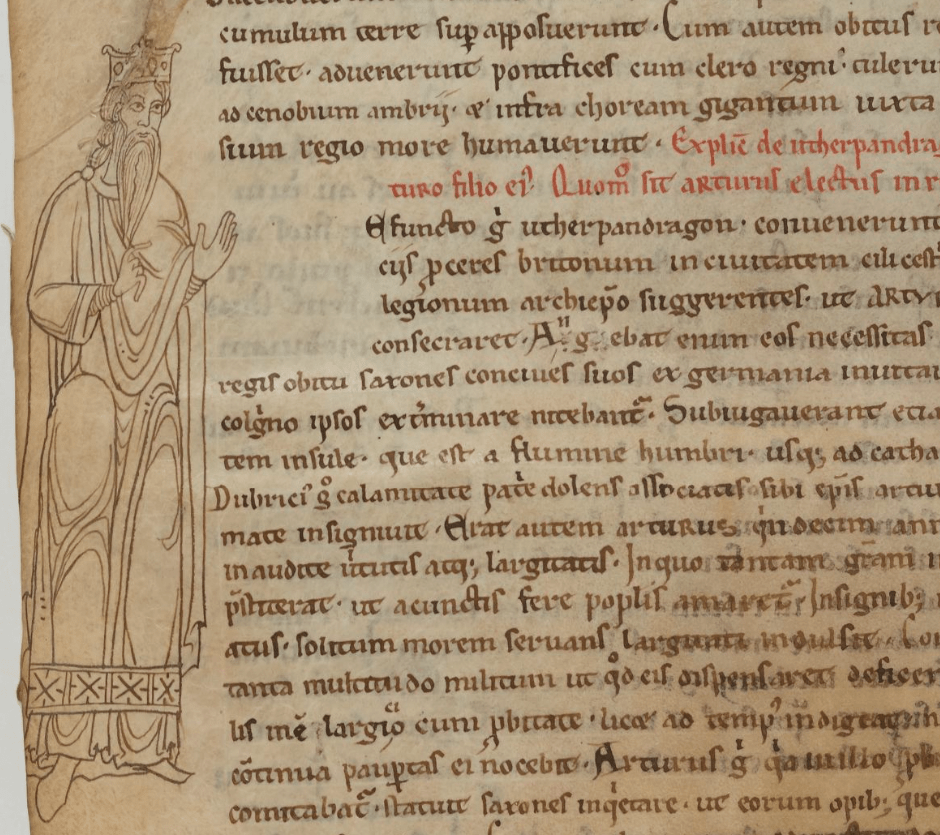 cumulum terre sup apposuerunt · Cum autem obitus re
fuisset · aduenerunt pontifices cum clero regni · tuleru
ad cenobium ambrij · & infra choream gigantum iuxta
sium regio more humauerunt · Explic̄ de utherpandrag
turo filio eiꝰ Quom̊ sit arturus electus in r
efuncto g̍ utherpandragon · conuenerunt
cijs ꝓceres britonum in ciuitatem cilicest
legionum archiep̄o suggerentes · ut ARTV
consecraret · An g ebat enim eos necessitas
regis obitu saxones conciues suos ex germania inuitau
colg̍no ipsos ext̄minare nitebant᷑ · Subiugauerant etia
tem insule · que est a flumine humbri · usq; ad catha
Dubriciꝰ g̊ calamitate pat̍e dolens associatis sibi ep̄is artu
mate insigniuit · Erat autem arturus q̍ndecim ann
inaudite u̍tutis atq; largitatis · In quo tantam gr̄am
p̄stiterat · ut a cunctis fere popl̍is amaret᷑ · Insignib;
atus · solitum morem seruans largitati indulsit · Co
tanta multitudo militum ut qd̊ eis dispensaret deficer
lis inē largio cum ꝓbitate · licet ad tempꝰ indigeat
cōtinua paup̱tas ei nocebit · Arturus g̍ q̍a in illo ꝓb
comitabat᷑ · statuit saxones inq̍etare · ut eorum opib; que